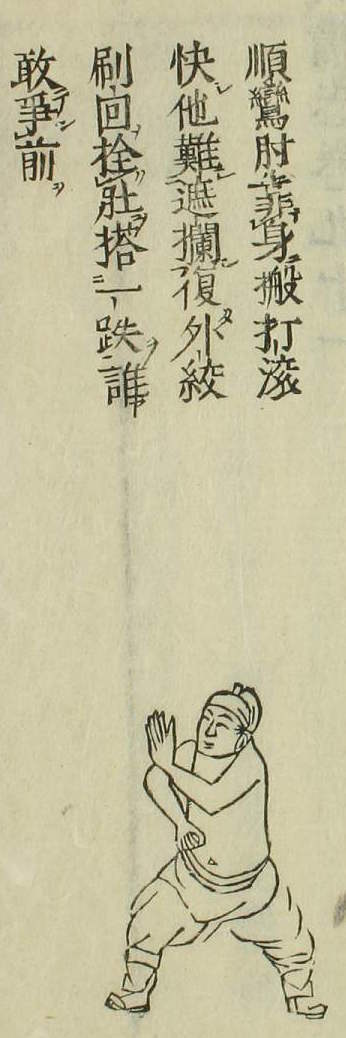 順鸞肘靠身搬打滚
快他難遮攔復外絞
刷回拴肚搭一跌誰
敢爭前